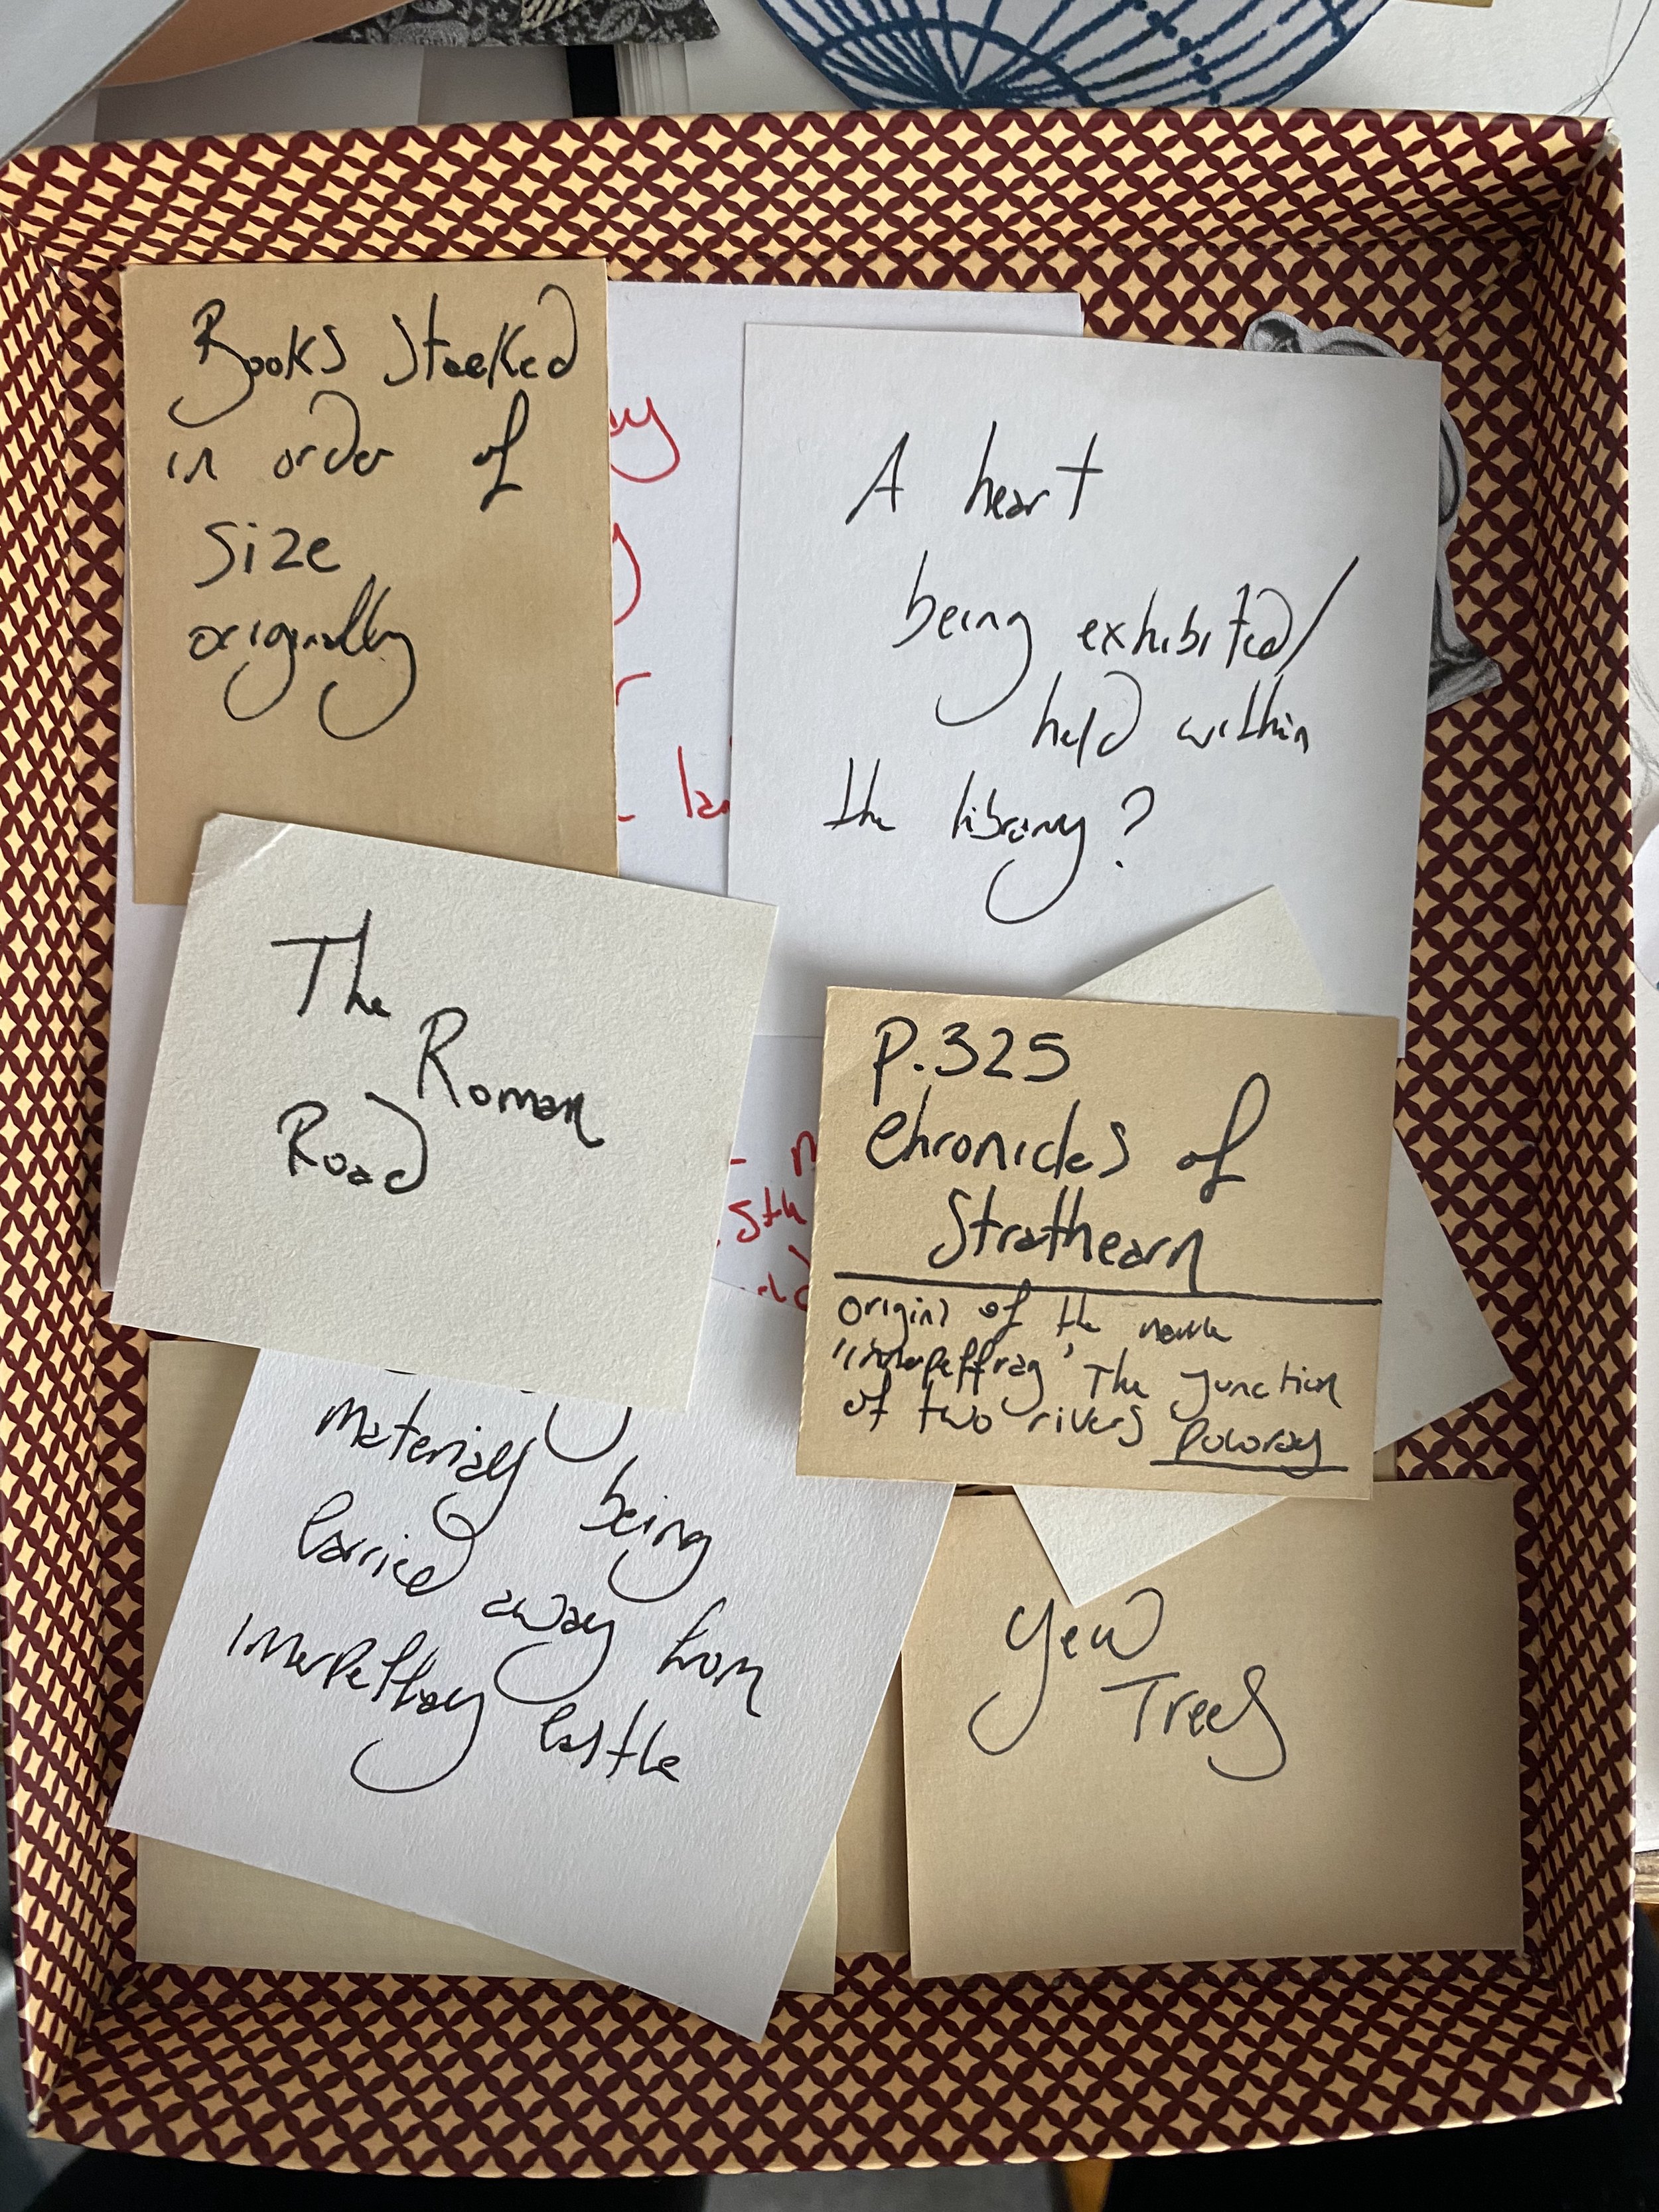 Books stacked
in order of
size
originally
A heart
being exhibited/
held within
the library?
The
Roman
Road
P.325
Chronicles of
Strathearn
origins of the name
'innerpeffray' The junction
of two rivers Powaray
materials being
carried away from
innerpeffray castle
Yew
Trees